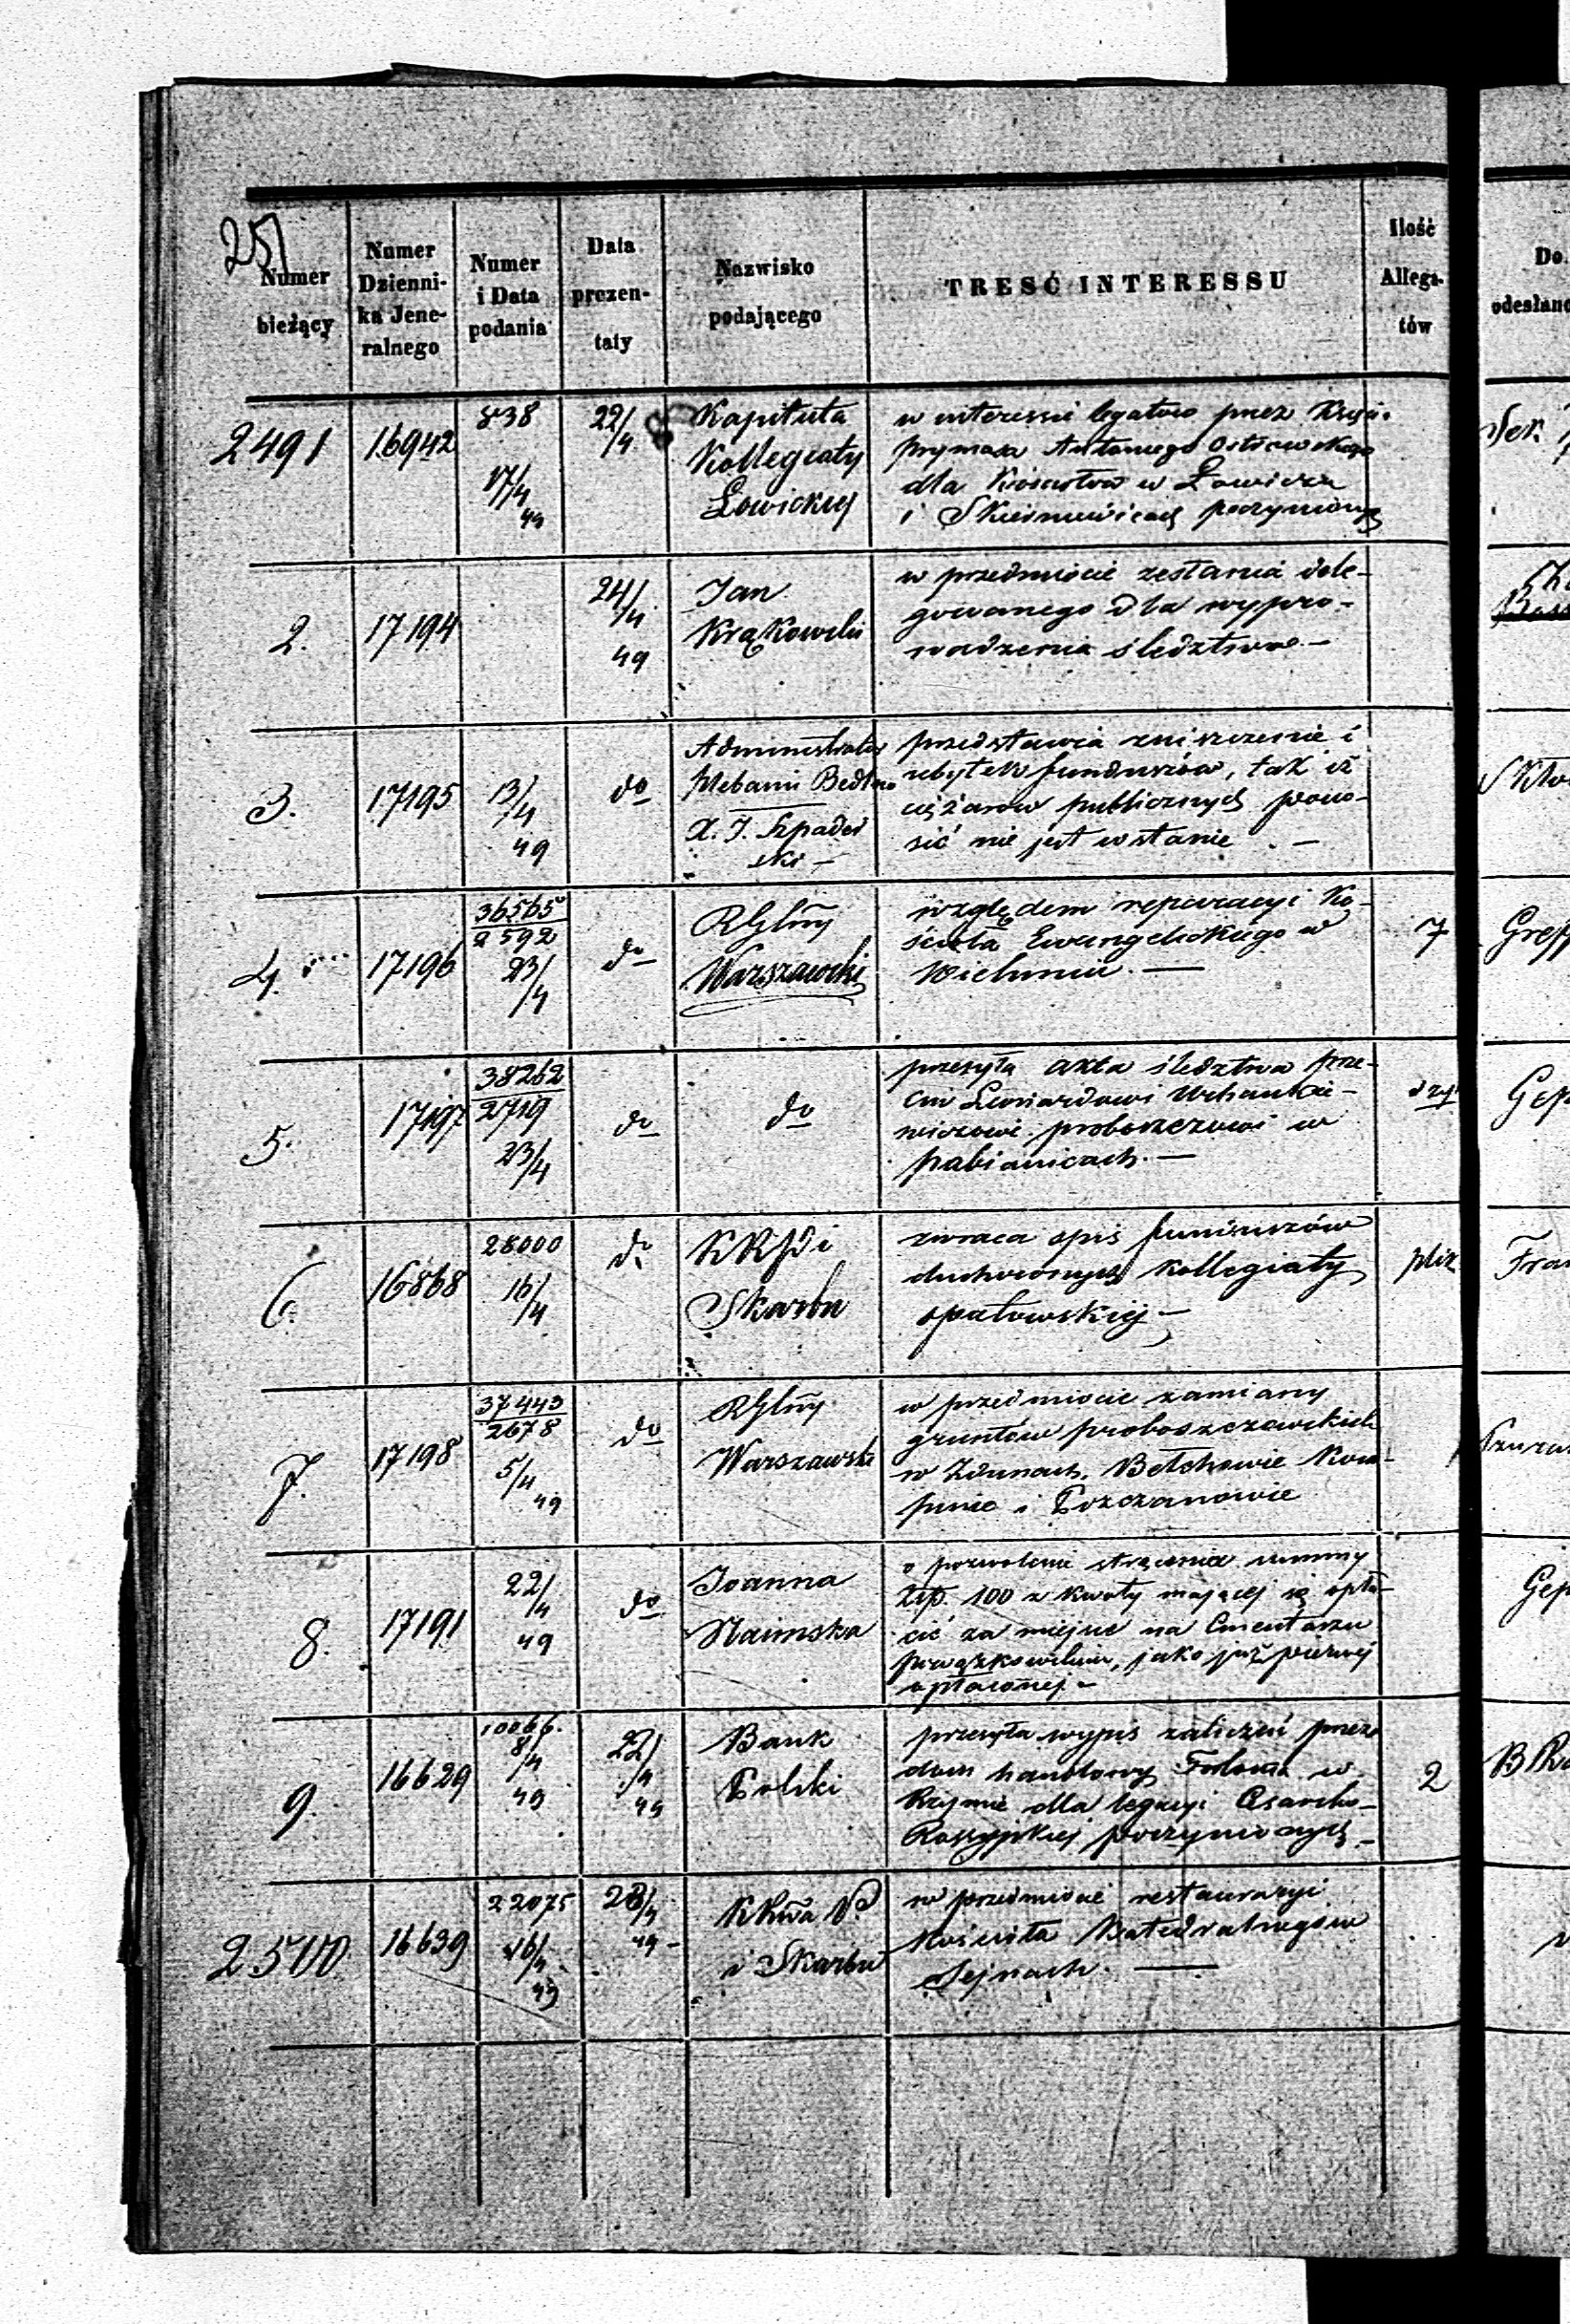 251
Numer bieżący
Numer Dzienni- ka Jene- ralnego
Numer i Data podania
Data prezen- taty
Nazwisko podającego
TRESĆ INTERESSU
Ilość Allega- tów
Do
odesłano
2491
16942
838
17/4
49
22/4
Kapituła
Kollegiaty
Łowickiej
w interessie legatów przez Księcia
Prymasa Antoniego Ostrowskiego
dla Kościołów w Łowiczu
i Skierniewicach poczynionych
2.
17194
24/4
49
Jan
Krąkowski
w przedmiocie zesłania dele-
gowanego dla wypro-
wadzenia śledztwa. —
3.
17195
13/4
49
do
Administrator
Plebanii Bedlno
X. J. Szpader
ski —
przedstawia zniszczenie i
ubytek funduszów, tak iż
ciężarów publicznych pono-
sić nie jest w stanie. —
4.
17196
36565
2592
23/4
do
RGlny
Warszawski
względem reparacyi Ko-
ścioła Ewangelickiego w
Wieluniu. —
7
5.
17197
38262
2719
23/4
do
do
przesyła akta śledztwa prze-
ciw Leonardowi
proboszczowi w
Pabianicach. —
6.
16868
28000
16/4
do
KRPi
Skarbu
zwraca opis funduszów
duchownych Kollegiaty
opatowskiej —
plik
7.
17198
37443
2678
5/4
49
do
RGlny
Warszawski
w przedmiocie zamiany
gruntów proboszczowskich
w Zdunach, Bełchowie Kom-
pinie i Pszczonowie
8.
17191
22/4
49
do
Joanna
Naimska
o pozwolenie strącenia summy
Złp. 100 z kwoty mającej się opła-
cić za miejsce na Cmentarzu
powązkowskim, jako już pierwej
opłaconej —
9.
16629
10066.
8/4
49
22/4
49
Bank
Polski
przesyła wypis zaliczeń przez
dom handlowy w
Rzymie dla legacyi Cesarsko-
Rossyjskiej poczynionych —
2
2500
16639
22075
16/4
49
23/4
49 —
KRwa P.
i Skarbu
w przedmiocie restauracyi
Kościoła Katedralnego w
Sejnach. —